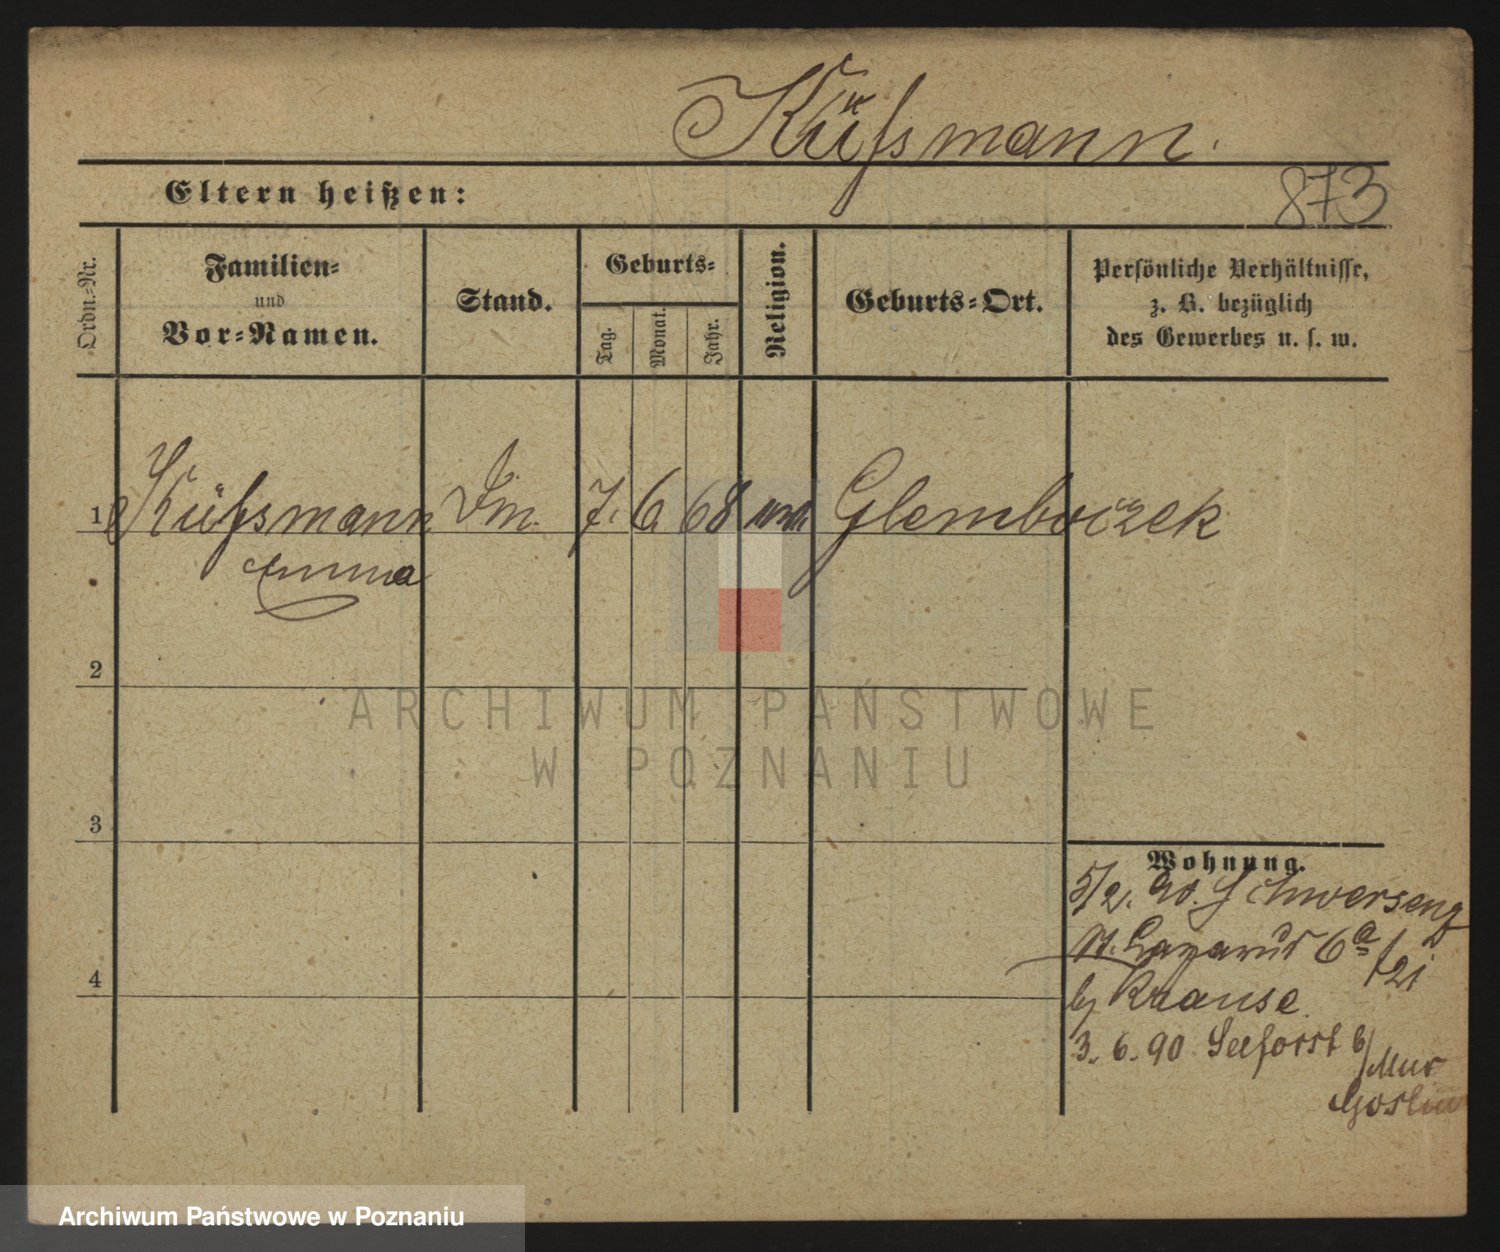 Küßmann.
873
Eltern heißen:
Ordn.-Nr.
Familien-
und
Vor-Namen.
Stand.
Geburts-
Tag.
Monat.
Jahr.
Religion.
Geburts-Ort.
Persönliche Verhältnisse,
z. B. bezüglich
des Gewerbes u. s. w.
1 Küßmann 7. 6. 68 Glemboczek
Emma
2
3
4
Wohnung.
5/2. 90. Schwersenz
St. Lazarus 6a
b/ Krause.
3. 6. 90 Seeforst b/
Mur
Goslin
ARCHIWUM PAŃSTWOWE
W POZNANIU
Archiwum Państwowe w Poznaniu